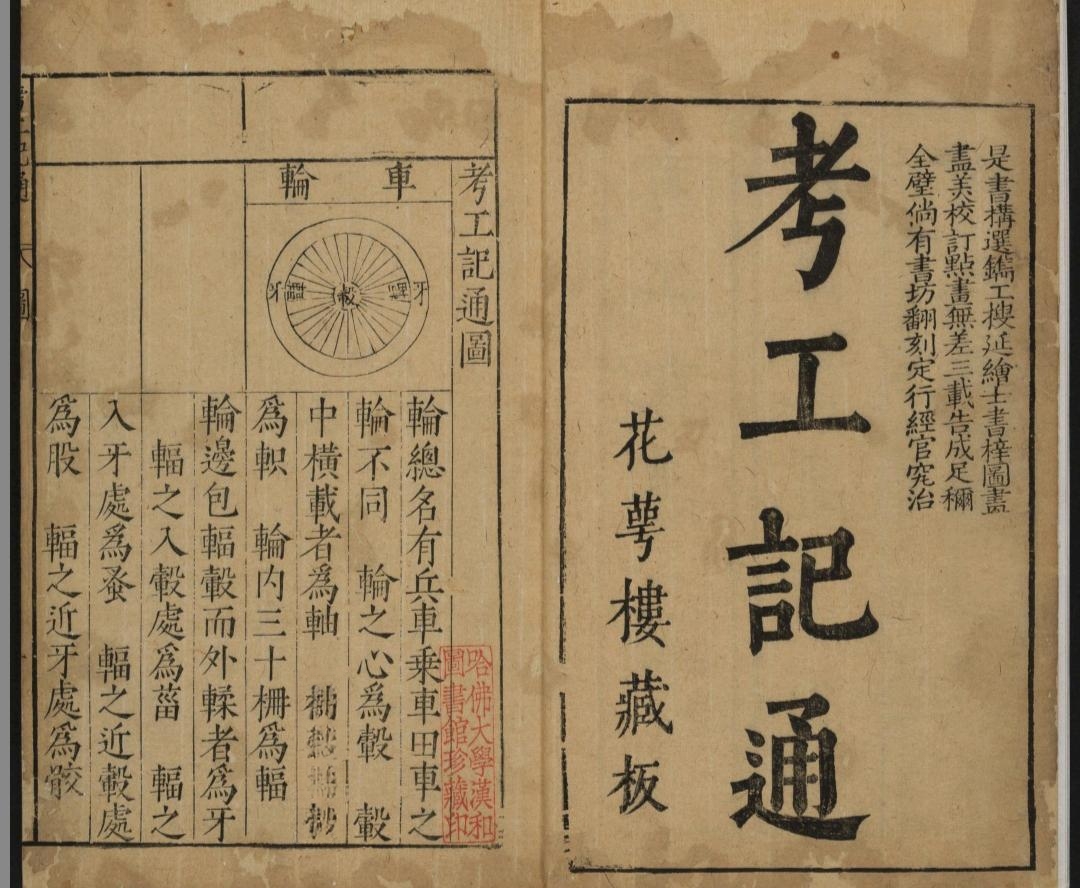 是書構選鐫工搜延繪士書梓圖畫
盡美校訂點畫無差三載告成足穪
全璧倘有書坊翻刻定行經官究治
考工記通
花萼樓藏板
考工記通圖
哈佛大學漢和
圖書館珍藏印
車輪
牙
轂
牙
輪總名有兵車乗車田車之
輪不同　輪之心爲轂　轂
中橫載者爲軸
爲軹　輪内三十柵爲輻
輪邊包輻轂而外輮者爲牙
輻之入轂處爲菑　輻之
入牙處爲蚤　輻之近轂處
爲股　輻之近牙處爲骹